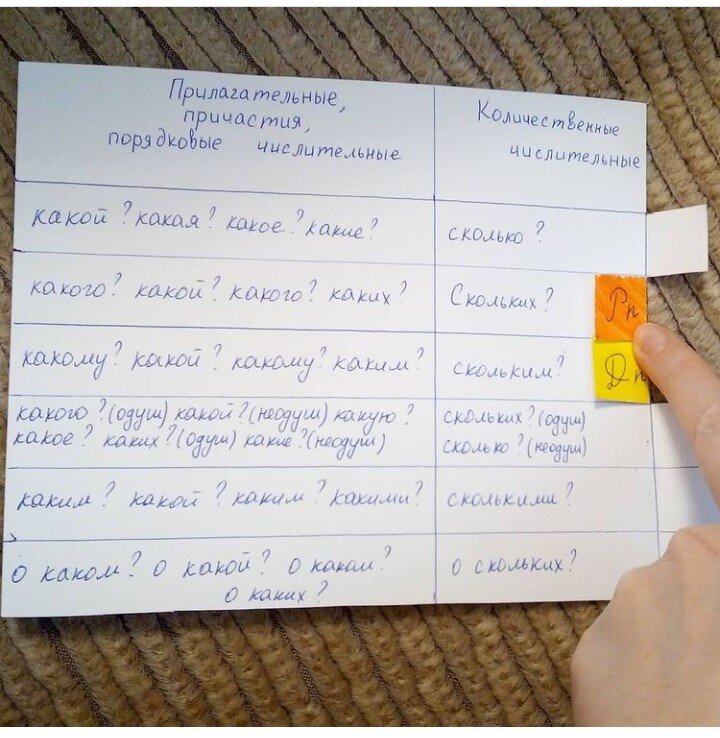 Прилагательные,
причастия,
порядковые числительные
Количественные
числительные
какой? какая? какое? какие?
сколько?
какого? какой? какого? каких?
Скольких?
Рп
какому? какой? какому? каким?
скольким?
Дп
какого? (одуш) какой? (неодуш) какую?
какое? каких? (одуш) какие? (неодуш)
скольких? (одуш)
сколько? (неодуш)
каким? какой? каким? какими?
сколькими?
о каком? о какой? о каком?
о каких?
о скольких?